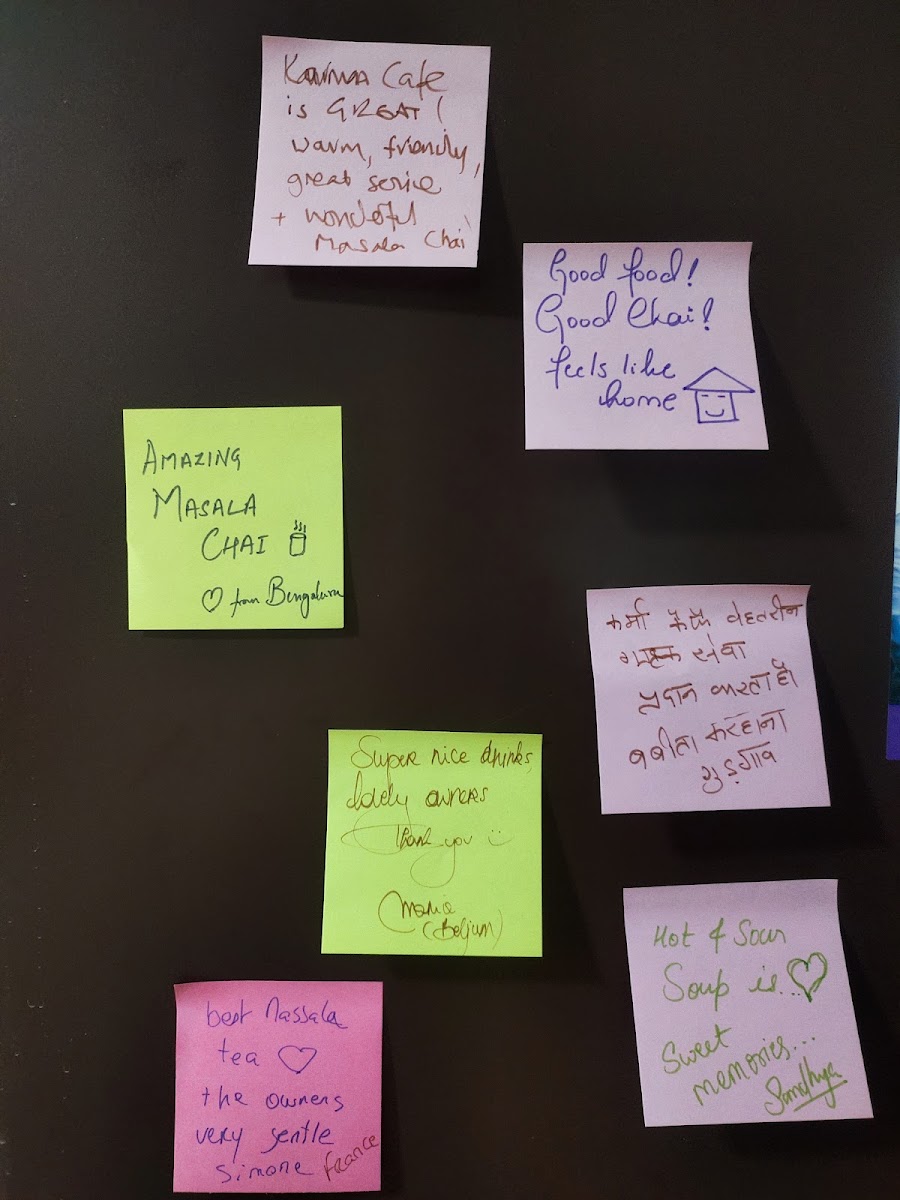 Karma Cafe
is GREAT!
warm, friendly,
great serice
+ wonderful
Masala Chai
Good food!
Good Chai!
feels like
home
AMAZING
MASALA
CHAI
from Bengaluru
कर्मा कैफे बेहतरीन
ग्राहक सेवा
प्रदान करता है।
बबीता करहाना
गुड़गाव
Super nice drinks,
lovely owners
Thank you :)
Maria
(Beljium)
Hot & Sour
Soup is...
Sweet
memories...
Sandhya
best Massala
tea
the owners
very gentle
simone France